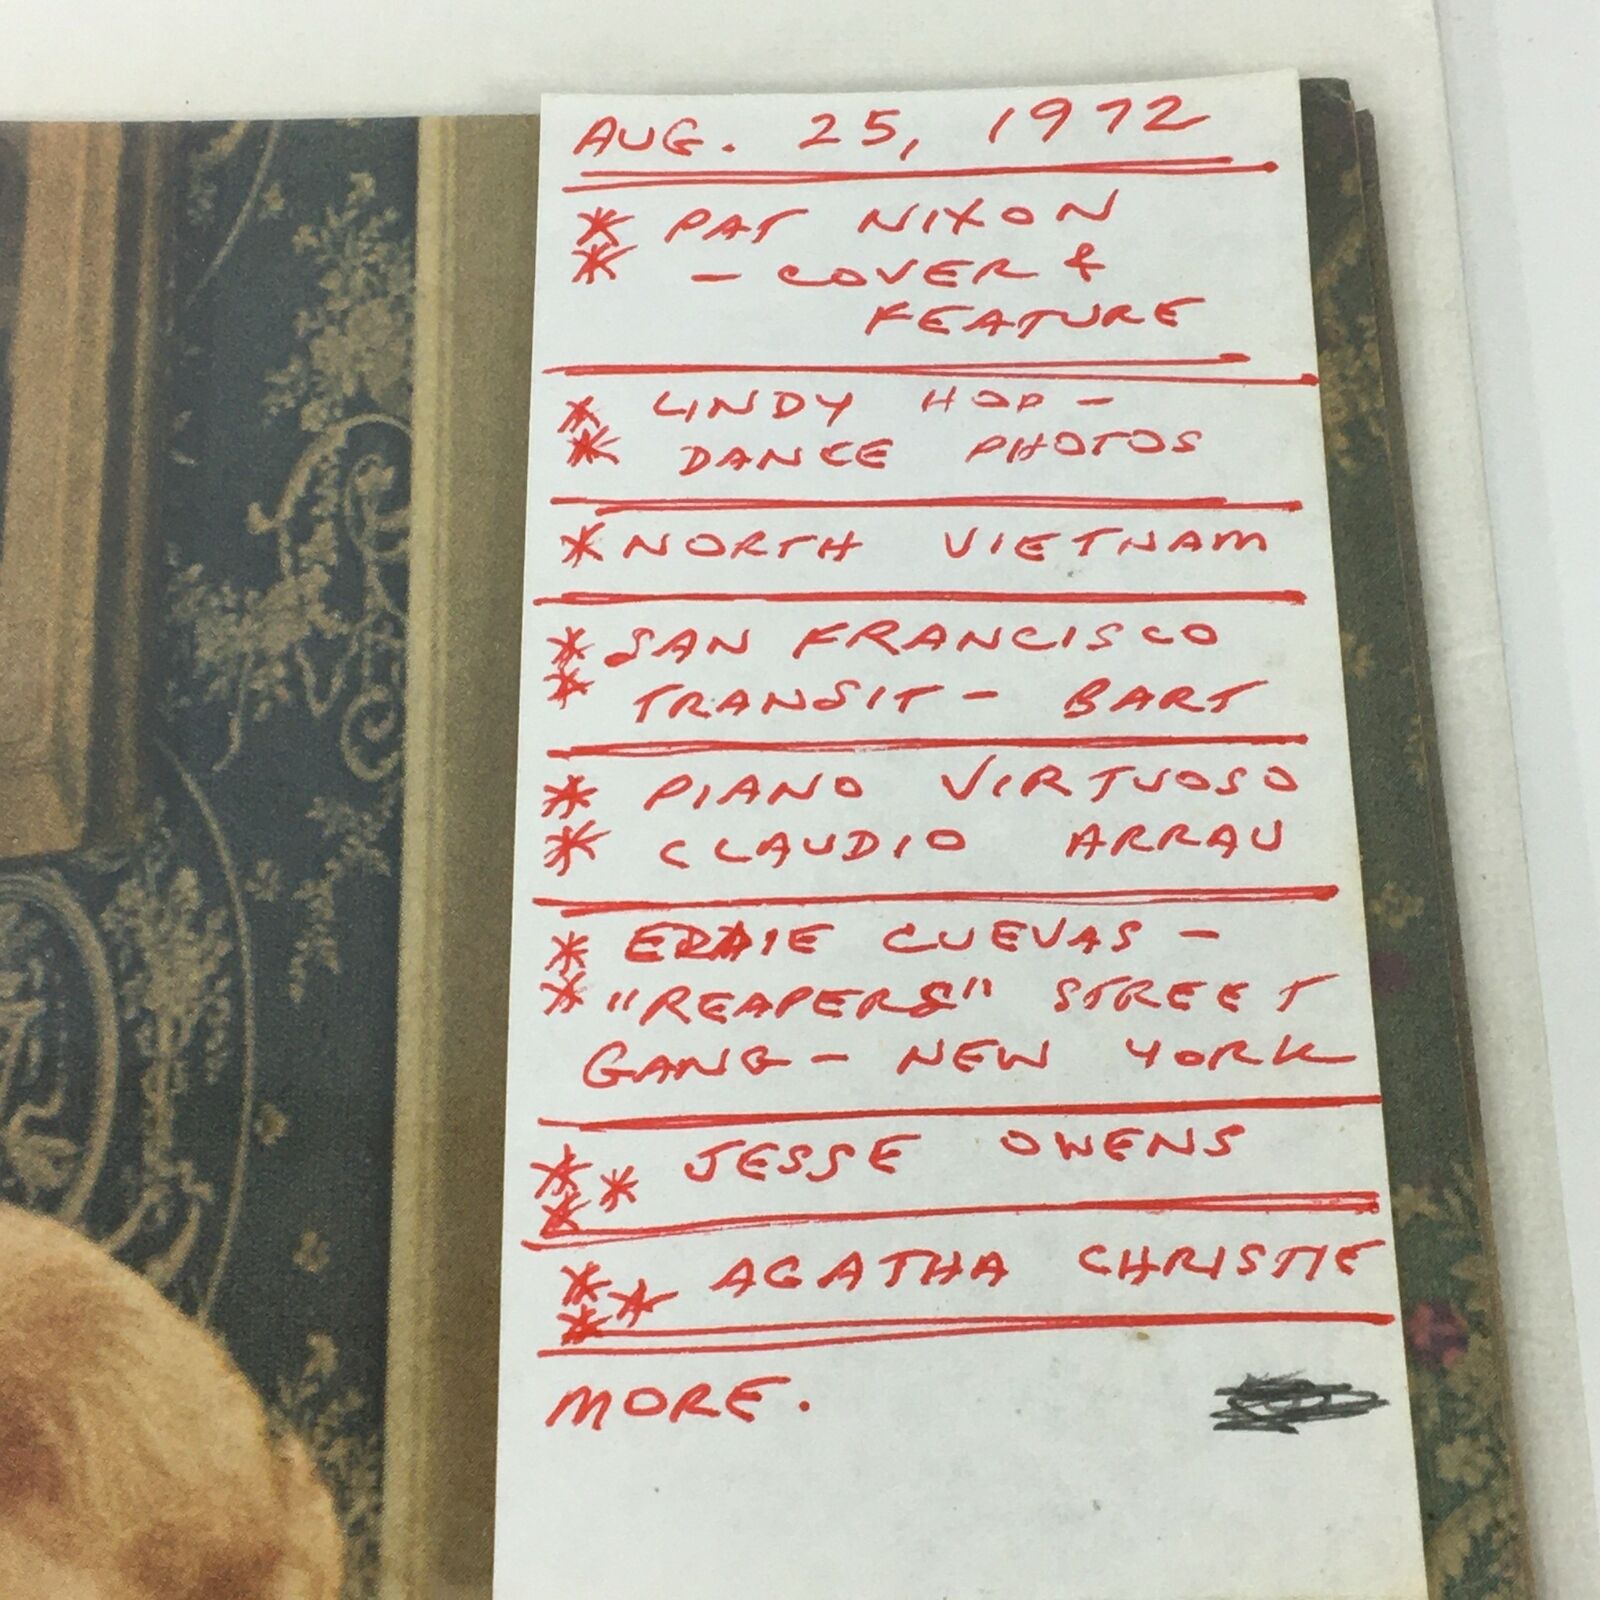 AUG. 25, 1972
* PAT NIXON
* - COVER &
FEATURE
* LINDY HOP -
* DANCE PHOTOS
* NORTH VIETNAM
* SAN FRANCISCO
* TRANSIT - BART
* PIANO VIRTUOSO
* CLAUDIO ARRAU
* CUEVAS -
* "REAPERS" STREET
GANG - NEW YORK
* * * JESSE OWENS
* * * AGATHA CHRISTIE
MORE.